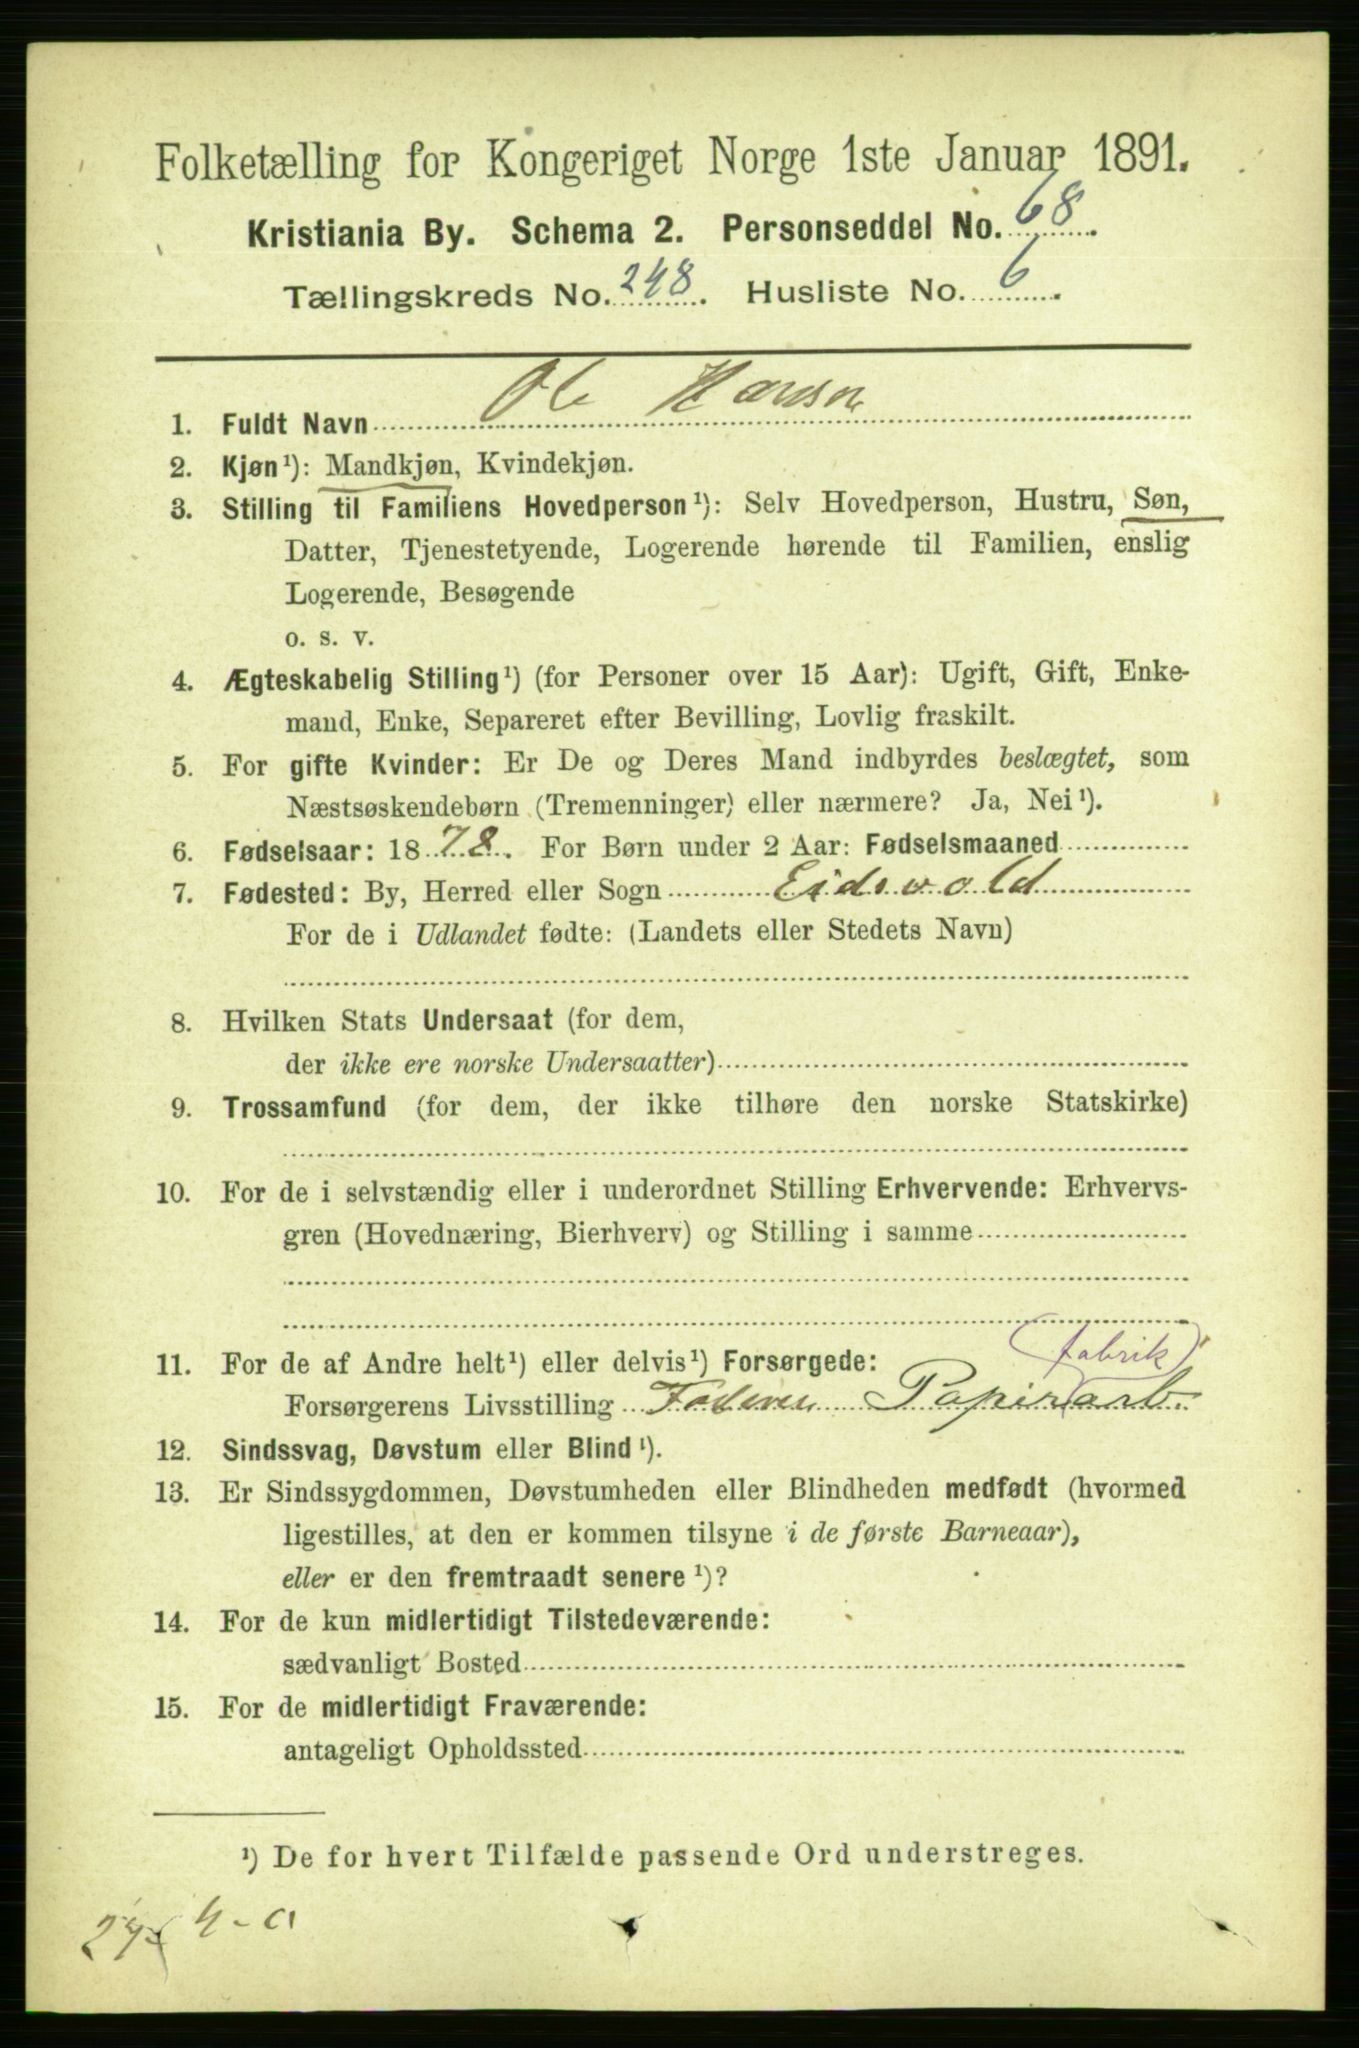 Folketælling for Kongeriget Norge 1ste Januar 1891.
Kristiania By. Schema 2. Personseddel No. 68.
Tællingskreds No. 248. Husliste No. 6.
1. Fuldt Navn Ole Hansen
2. Kjøn¹): Mandkjøn, Kvindekjøn.
3. Stilling til Familiens Hovedperson¹): Selv Hovedperson, Hustru, Søn,
Datter, Tjenestetyende, Logerende hørende til Familien, enslig
Logerende, Besøgende
o. s. v.
4. Ægteskabelig Stilling¹) (for Personer over 15 Aar): Ugift, Gift, Enke-
mand, Enke, Separeret efter Bevilling, Lovlig fraskilt.
5. For gifte Kvinder: Er De og Deres Mand indbyrdes beslægtet, som
Næstsøskendebørn (Tremenninger) eller nærmere? Ja, Nei¹).
6. Fødselsaar: 1878. For Børn under 2 Aar: Fødselsmaaned
7. Fødested: By, Herred eller Sogn Eidsvold
For de i Udlandet fødte: (Landets eller Stedets Navn)
8. Hvilken Stats Undersaat (for dem,
der ikke ere norske Undersaatter)
9. Trossamfund (for dem, der ikke tilhøre den norske Statskirke)
10. For de i selvstændig eller i underordnet Stilling Erhvervende: Erhvervs-
gren (Hovednæring, Bierhverv) og Stilling i samme
11. For de af Andre helt¹) eller delvis¹) Forsørgede:
fabrik
Forsørgerens Livsstilling Faderen Papirarb.
12. Sindssvag, Døvstum eller Blind¹).
13. Er Sindssygdommen, Døvstumheden eller Blindheden medfødt (hvormed
ligestilles, at den er kommen tilsyne i de første Barneaar),
eller er den fremtraadt senere¹)?
14. For de kun midlertidigt Tilstedeværende:
sædvanligt Bosted
15. For de midlertidigt Fraværende:
antageligt Opholdssted
¹) De for hvert Tilfælde passende Ord understreges.
4-a